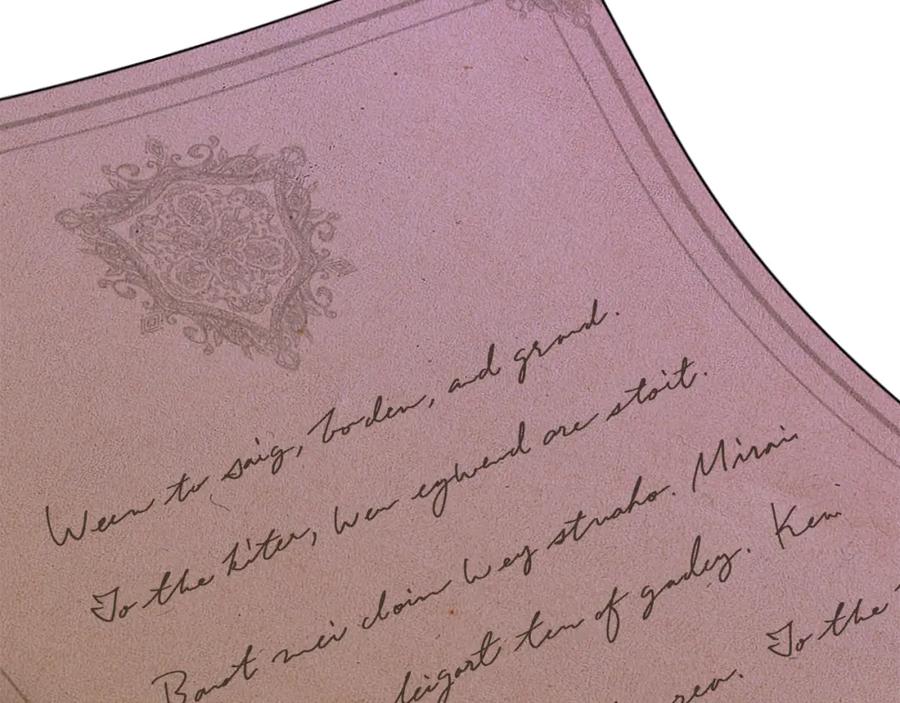 Ween to saig, boden, and grand.
To the kiter, wer eywend are stoit.
Banot mei cloin wey struaho. Mirai
leigart ten of gadey. Ken
rea. To the